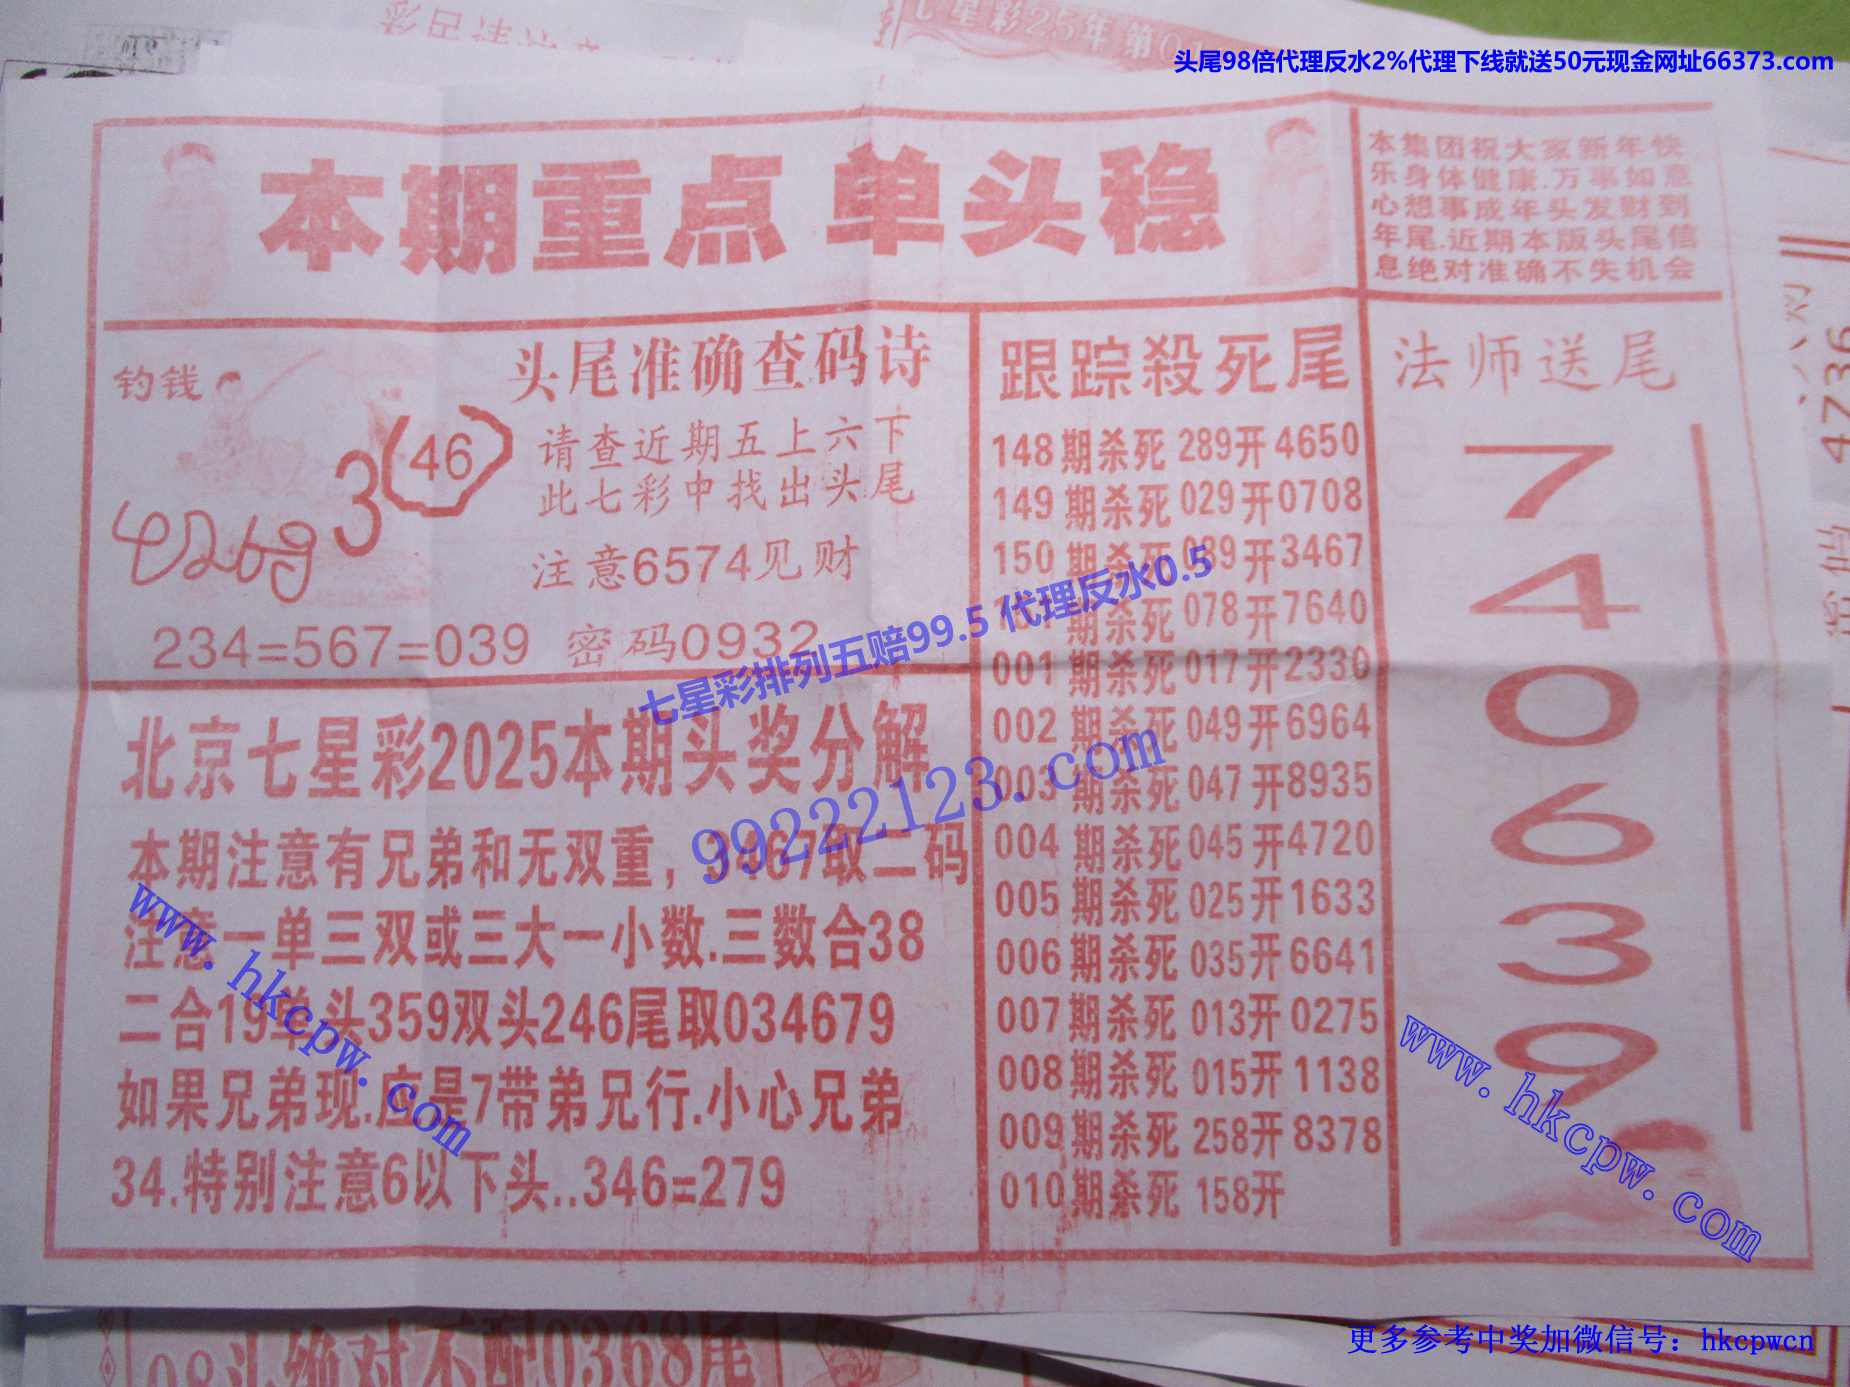 七星彩25年第0
头尾98倍代理反水2%代理下线就送50元现金网址66373.com
本期重点 单头稳
本集团祝大家新年快
乐身体健康.万事如意
心想事成年头发财到
年尾.近期本版头尾信
息绝对准确不失机会
钓钱
3
46
4269
头尾准确查码诗
请查近期五上六下
此七彩中找出头尾
注意6574见财
234=567=039 密码0932
跟踪殺死尾
148期杀死289开4650
149期杀死029开0708
150期杀死089开3467
151期杀死078开7640
001期杀死017开2330
002期杀死049开6964
003期杀死047开8935
004期杀死045开4720
005期杀死025开1633
006期杀死035开6641
007期杀死013开0275
008期杀死015开1138
009期杀死258开8378
010期杀死158开
法师送尾
7
4
0
6
3
9
北京七星彩2025本期头奖分解
本期注意有兄弟和无双重，3467取二码
注意一单三双或三大一小数.三数合38
二合19单头359双头246尾取034679
如果兄弟现.应是7带弟兄行.小心兄弟
34.特别注意6以下头..346=279
七星彩排列五赔99.5 代理反水0.5
99222123.com
www.hkcpw.com
www.hkcpw.com
4736
密码
08头绝对不配0368尾
更多参考中奖加微信号：hkcpwcn